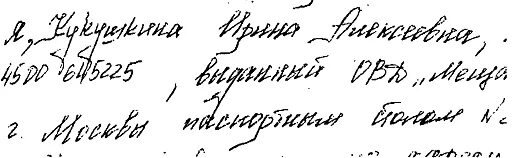 я, Кукушкина Ирина Алексеевна,
4500 645225, выданный ОВД „Меща
г. Москвы паспортным столом №